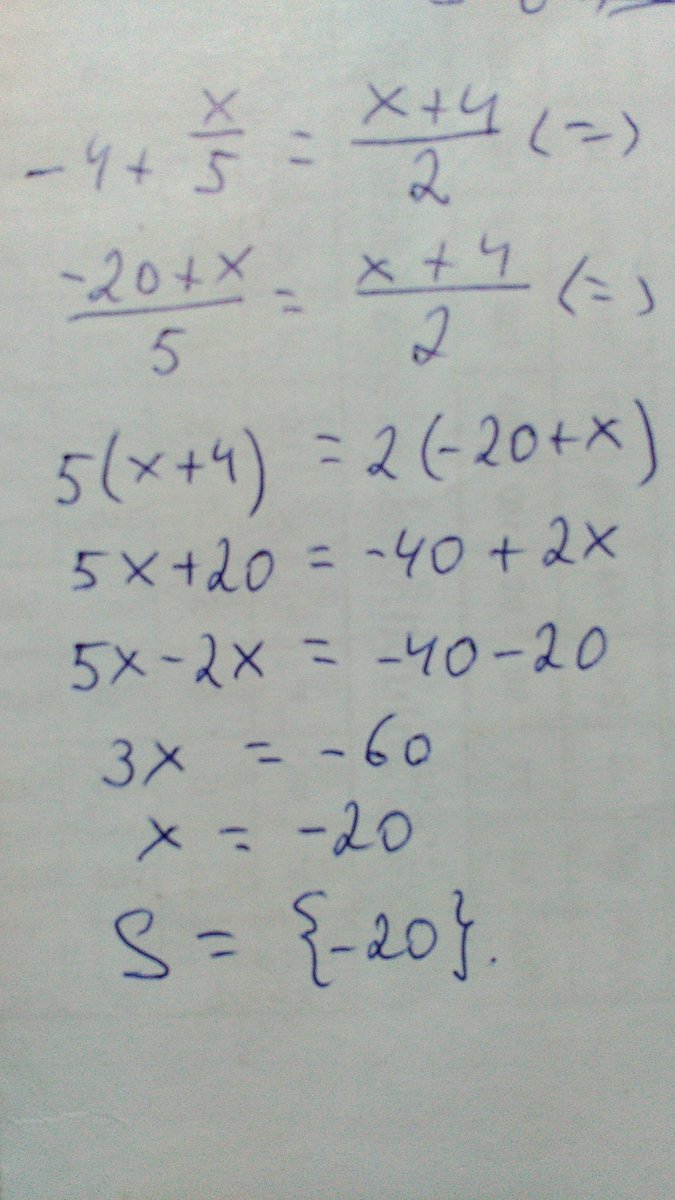 -4 + x/5 = (x+4)/2 (=)
(-20+x)/5 = (x+4)/2 (=)
5(x+4) = 2(-20+x)
5x+20 = -40 + 2x
5x-2x = -40-20
3x = -60
x = -20
S = {-20}.